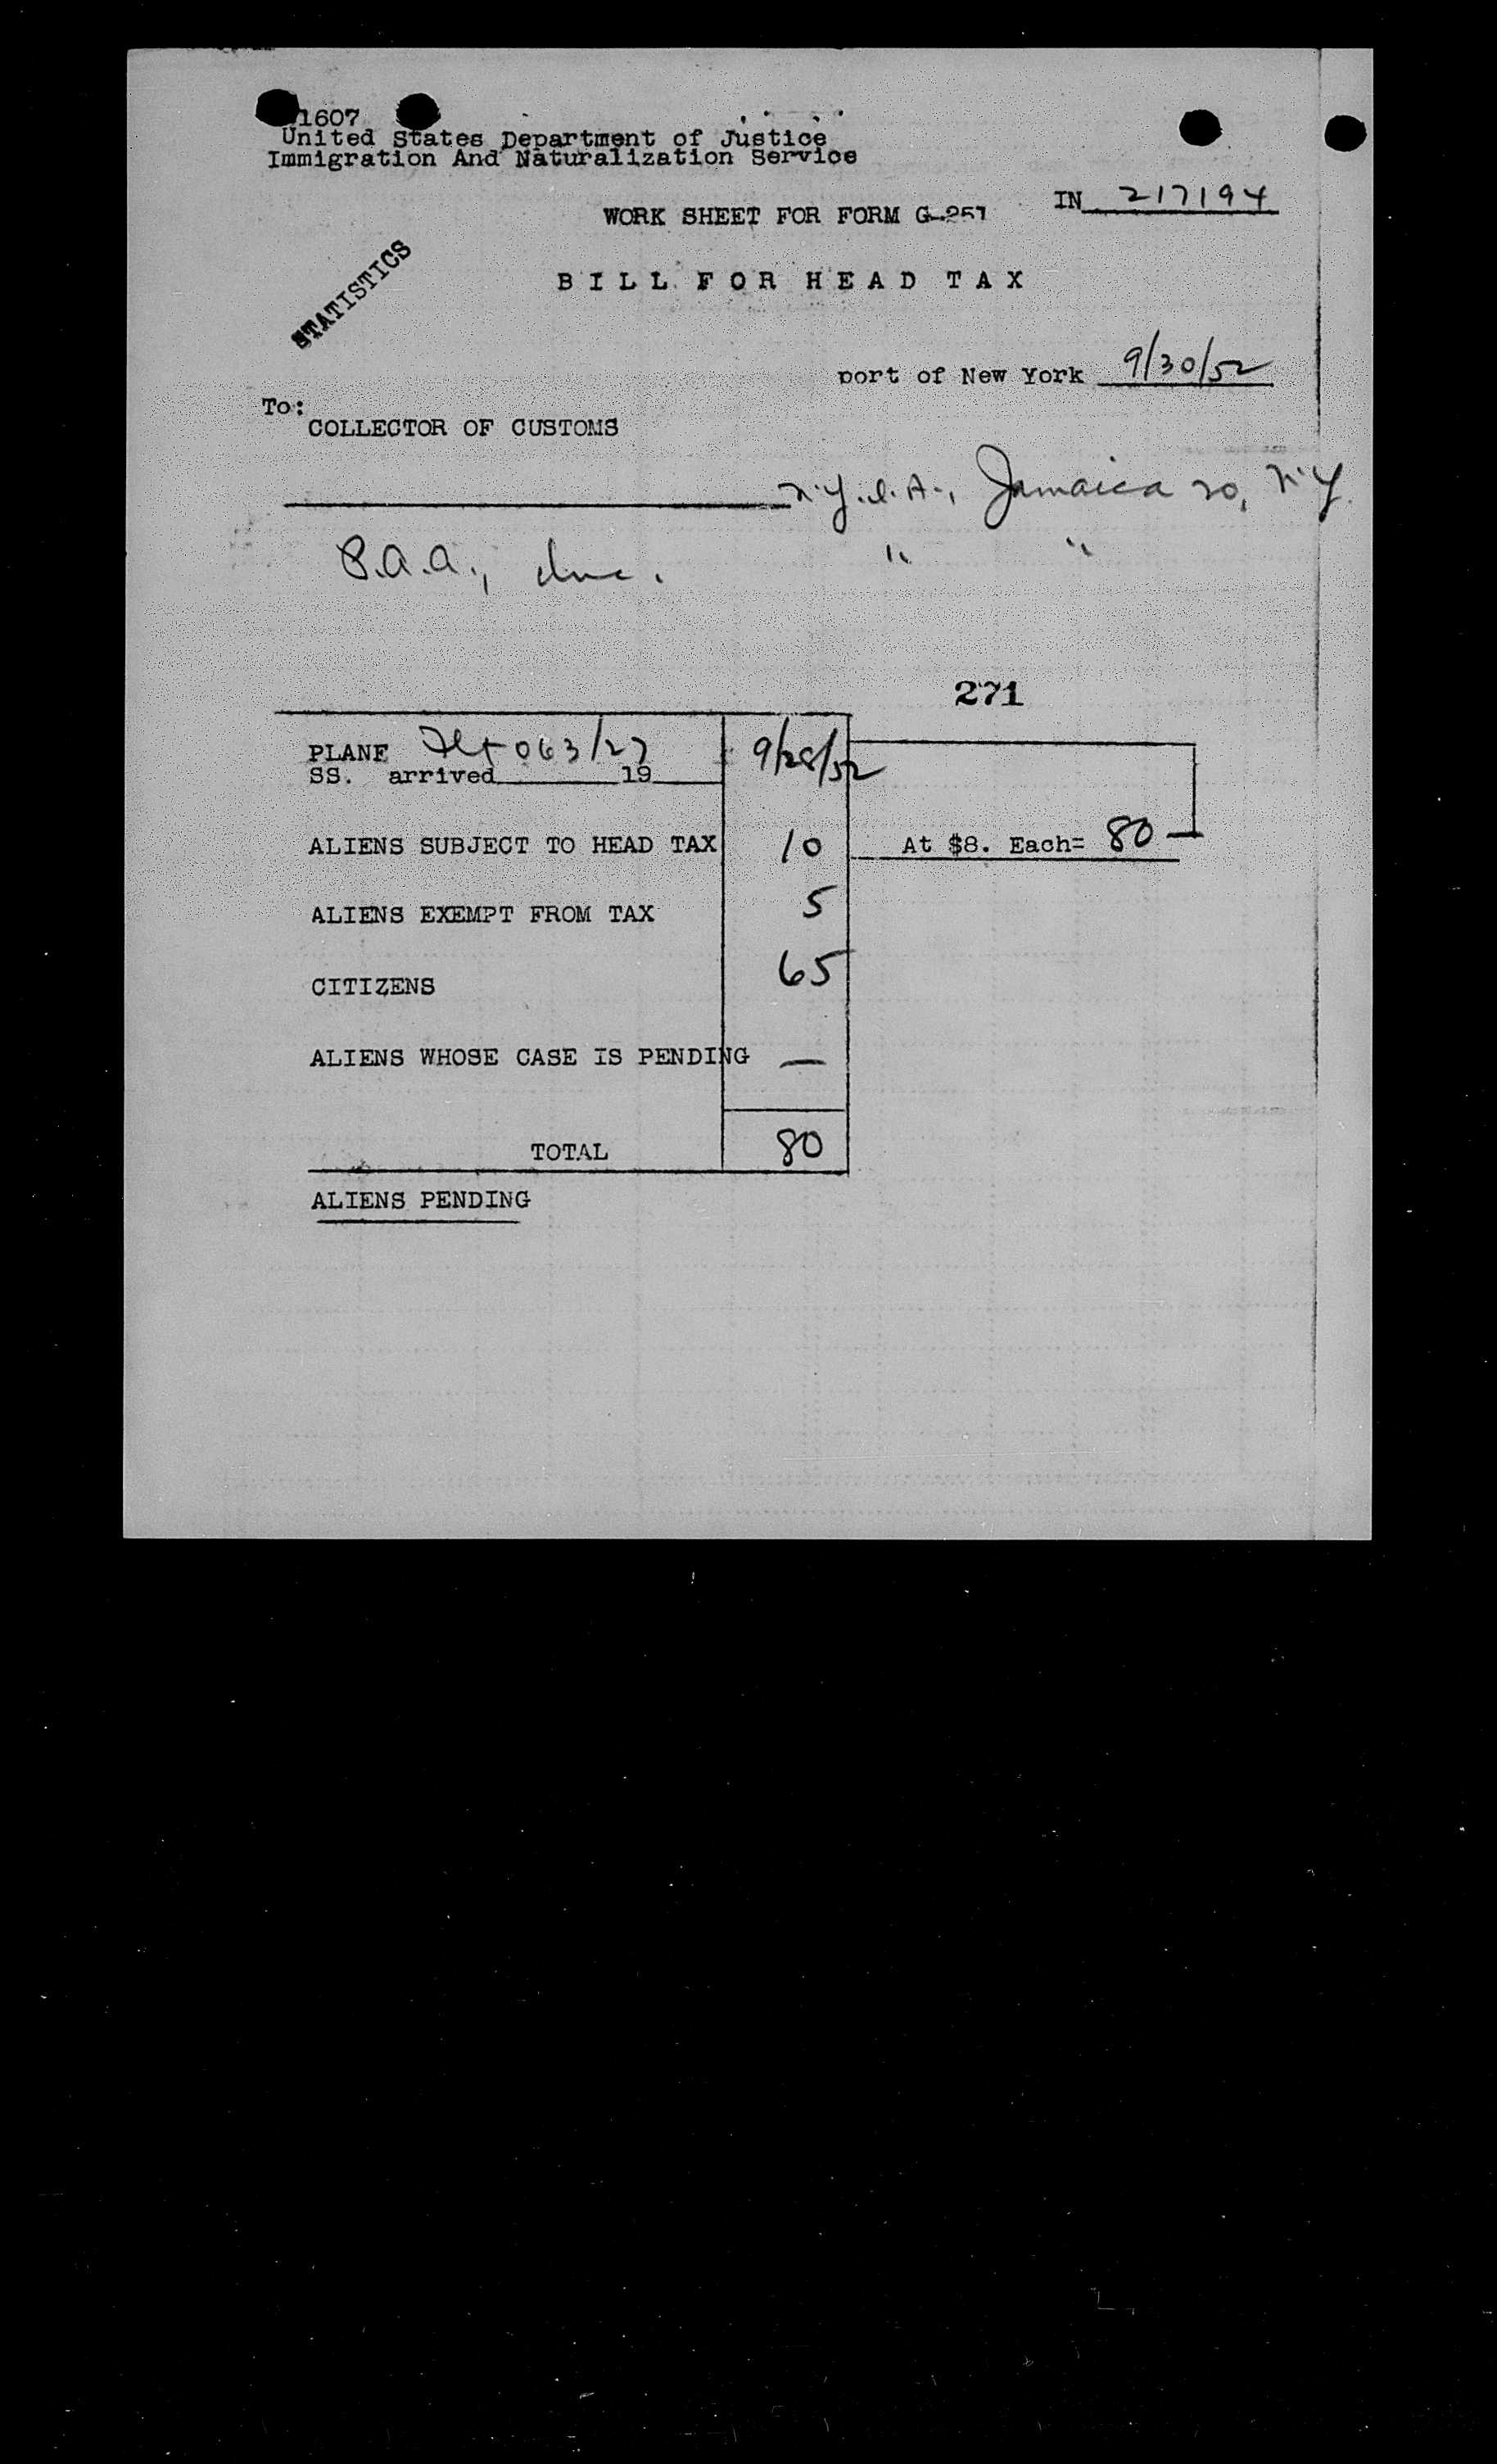 1607
United States Department of Justice
Immigration And Naturalization Service
IN 217194
WORK SHEET FOR FORM G-257
STATISTICS
BILL FOR HEAD TAX
port of New York 9/30/52
To:
COLLECTOR OF CUSTOMS
N.Y.I.A., Jamaica 20, N.Y.
P.A.A., Inc. " "
271
PLANE Flt 063/27 9/28/52
SS. arrived 19
ALIENS SUBJECT TO HEAD TAX 10 At $8. Each= 80
ALIENS EXEMPT FROM TAX 5
CITIZENS 65
ALIENS WHOSE CASE IS PENDING —
TOTAL 80
ALIENS PENDING